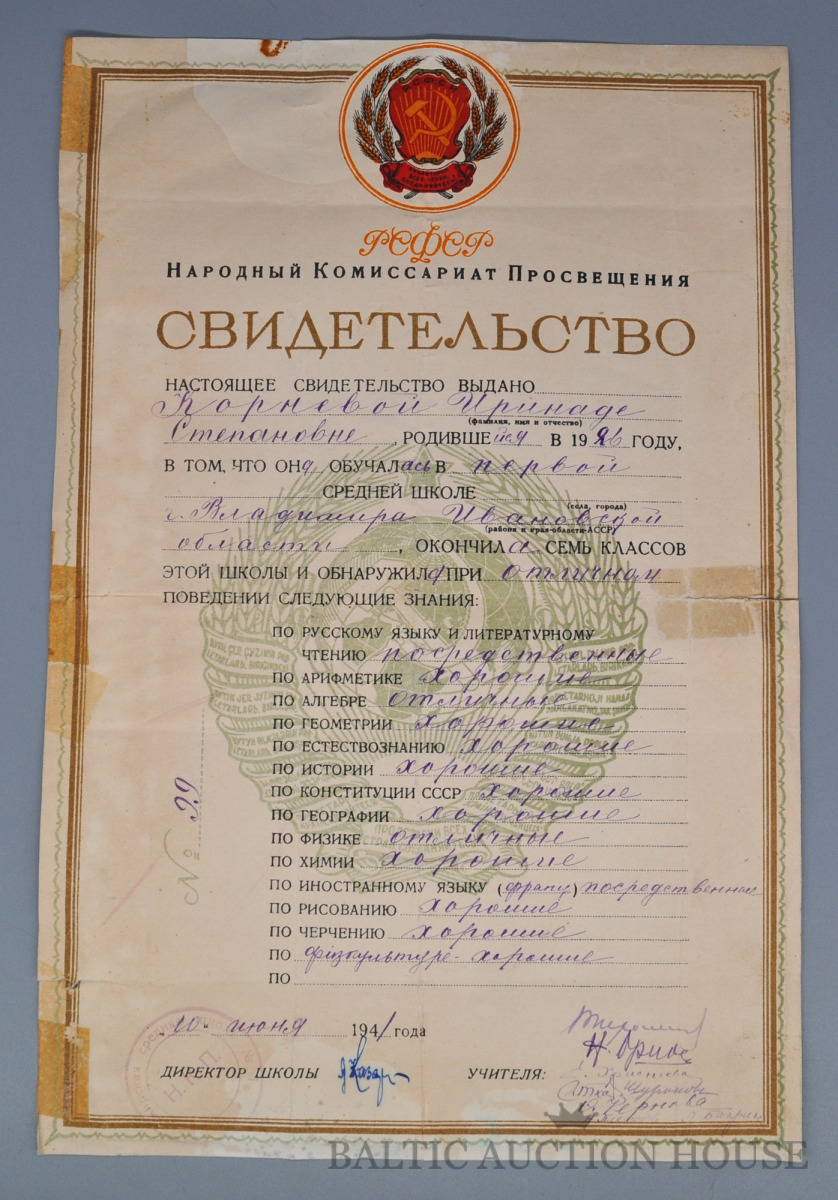 РСФСР
НАРОДНЫЙ КОМИССАРИАТ ПРОСВЕЩЕНИЯ
СВИДЕТЕЛЬСТВО
НАСТОЯЩЕЕ СВИДЕТЕЛЬСТВО ВЫДАНО
Корневой Иринаде
(фамилия, имя и отчество)
Степановне, РОДИВШЕйся В 1926 ГОДУ,
В ТОМ, ЧТО ОНа ОБУЧАЛась В первой
СРЕДНЕЙ ШКОЛЕ
(села, города)
г. Владимира Ивановской
(района и края-области-АССР)
области, ОКОНЧИЛа СЕМЬ КЛАССОВ
ЭТОЙ ШКОЛЫ И ОБНАРУЖИЛа ПРИ отличном
ПОВЕДЕНИИ СЛЕДУЮЩИЕ ЗНАНИЯ:
ПО РУССКОМУ ЯЗЫКУ И ЛИТЕРАТУРНОМУ
ЧТЕНИЮ посредственные
ПО АРИФМЕТИКЕ хорошие
ПО АЛГЕБРЕ отличные
ПО ГЕОМЕТРИИ хорошие
ПО ЕСТЕСТВОЗНАНИЮ хорошие
ПО ИСТОРИИ хорошие
ПО КОНСТИТУЦИИ СССР хорошие
ПО ГЕОГРАФИИ хорошие
ПО ФИЗИКЕ отличные
ПО ХИМИИ хорошие
ПО ИНОСТРАННОМУ ЯЗЫКУ (франц) посредственные
ПО РИСОВАНИЮ хорошие
ПО ЧЕРЧЕНИЮ хорошие
ПО физкультуре - хорошие
ПО
№ 99
"10" июня 1941 года
ДИРЕКТОР ШКОЛЫ
УЧИТЕЛЯ:
Чернова
BALTIC AUCTION HOUSE